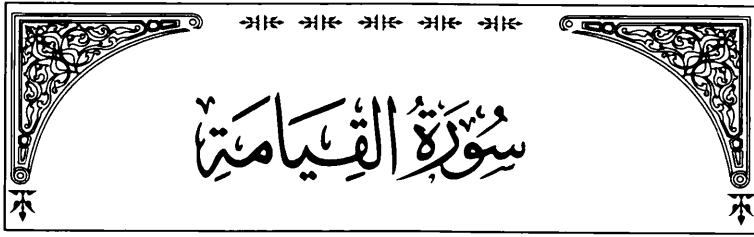 سُورَةُ القِيَامَةِ